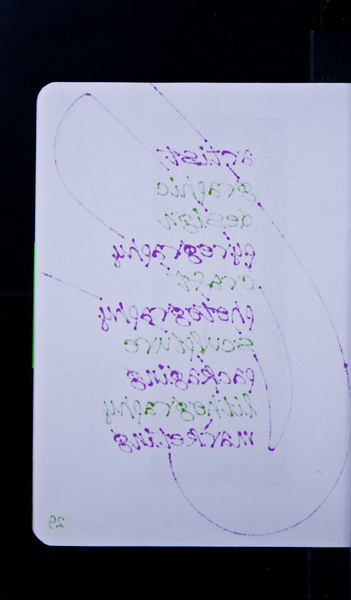 artist
graphic
design
pyrography
craft
photography
sculpture
packaging
lithography
marketing
29